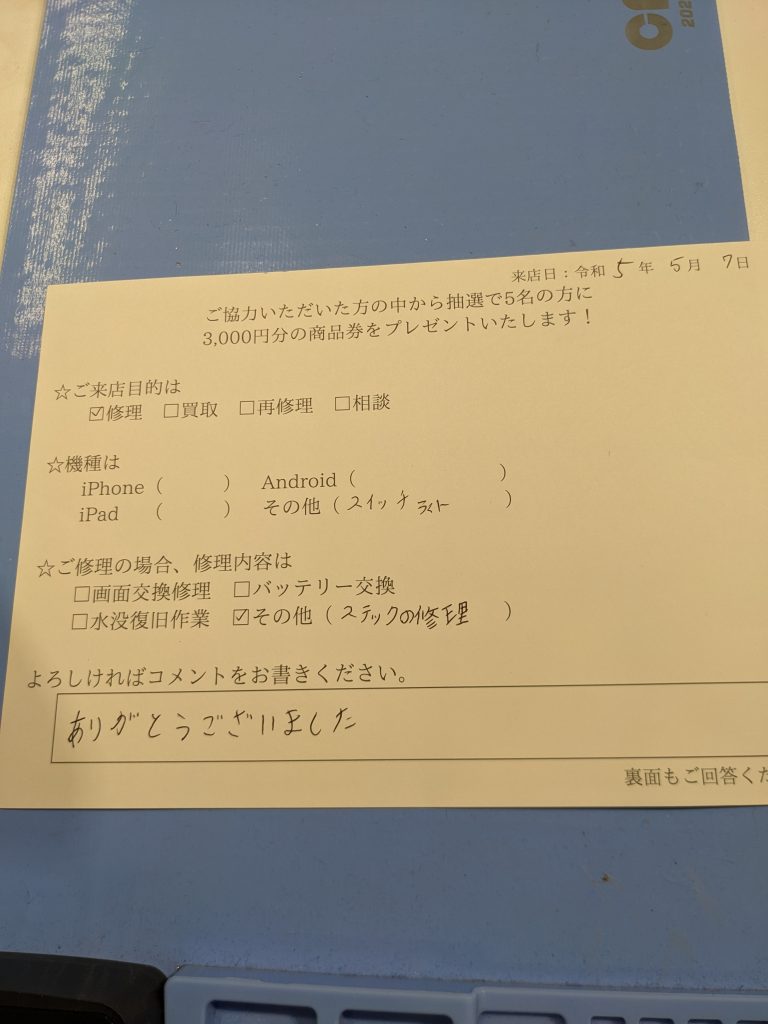 202
来店日：令和 5 年 5 月 7 日
ご協力いただいた方の中から抽選で5名の方に
3,000円分の商品券をプレゼントいたします！
☆ご来店目的は
☑修理 □買取 □再修理 □相談
☆機種は
iPhone（ ） Android（ ）
iPad （ ） その他（スイッチ ライト ）
☆ご修理の場合、修理内容は
□画面交換修理 □バッテリー交換
□水没復旧作業 ☑その他（ステックの修理 ）
よろしければコメントをお書きください。
ありがとうございました
裏面もご回答くだ